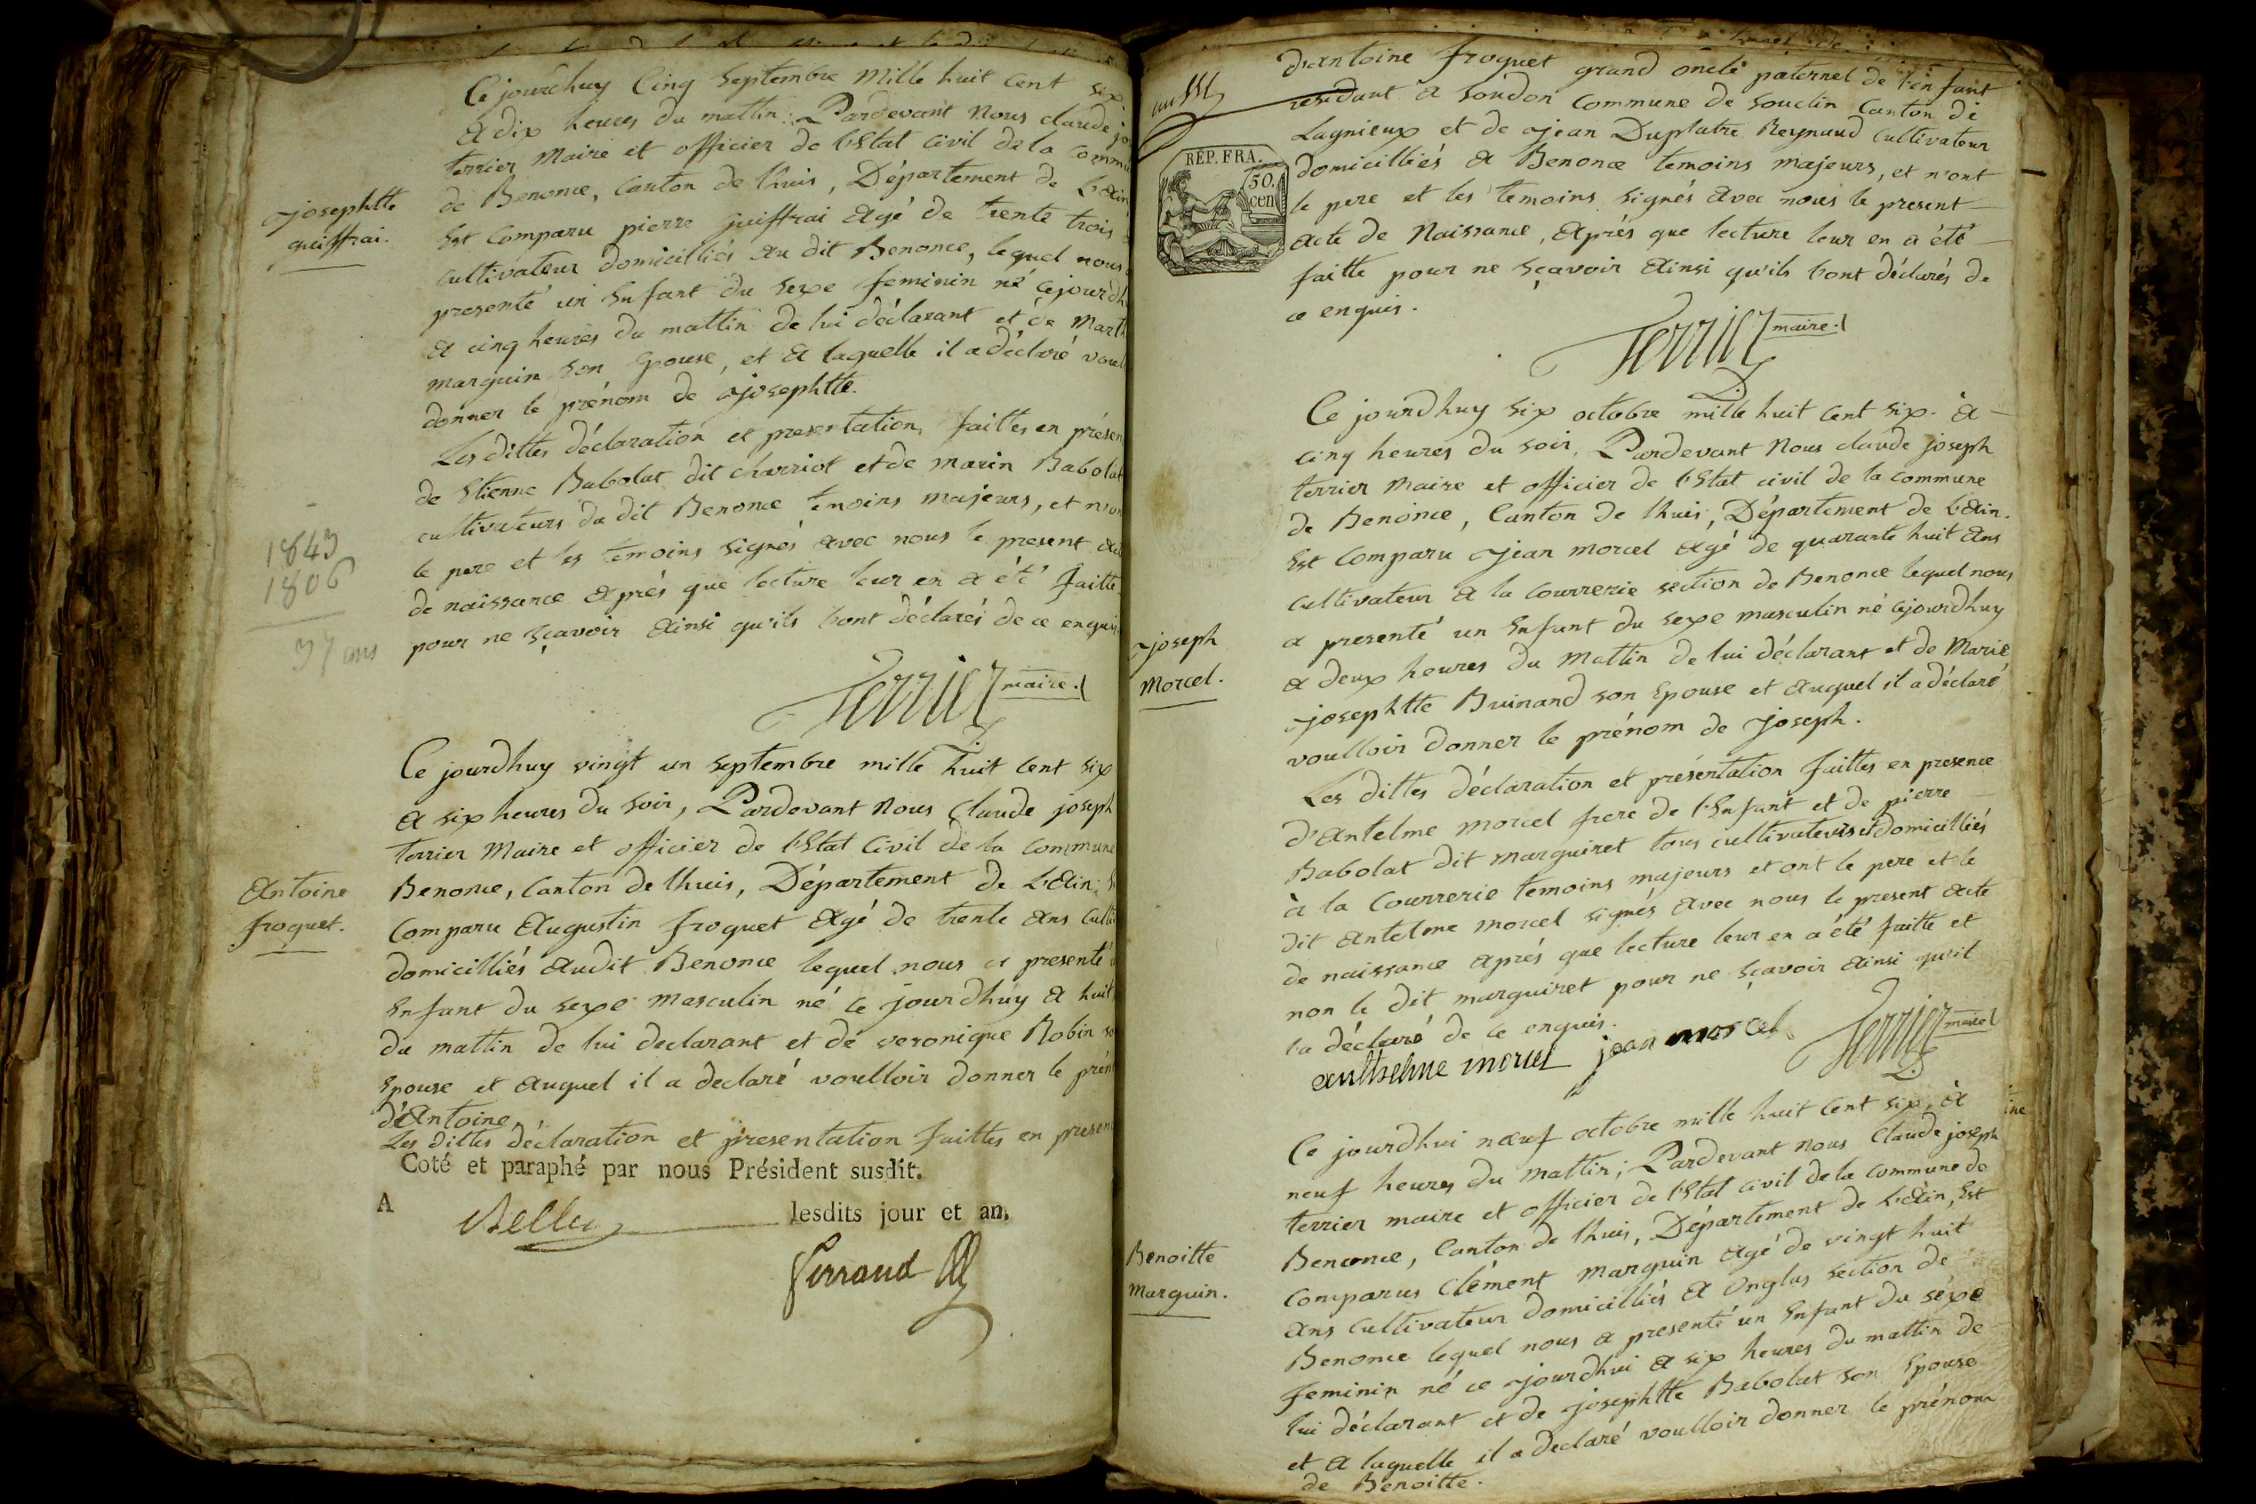 Ce jourd'huy Cinq Septembre Mille huit Cent six
a dix heures du mattin; Pardevant Nous claude jo
terrier Maire et officier de l'Etat Civil de la Commu
de Benonce, Canton de lhuis, Département de L'Ain
Est Comparu pierre juiffrai agé de trente trois
cultivateur domicilliés au dit Benonce, lequel nous
presenté un Enfant du sexe feminin né cejourdh
a cinq heures du mattin de lui déclarant et de Marth
marguin son Epouse, et a laquelle il a déclaré voul
donner le prénom de josephtte.
Les dittes déclaration et presentation, faittes en présen
de Etienne Babolat dit charriot et de marin Babolat
cultivateurs du dit Benonce temoins majeurs, et n'on
le pere et les temoins signés avec nous le present ac
de naissance après que lecture leur en a été faitte
pour ne sçavoir ainsi qu'ils l'ont déclarés de ce enquis
josephtte
guiffrai.
1843
1806
37 ans
Terrier maire.
Ce jourdhuy vingt un septembre mille huit Cent six
a six heures du soir, Pardevant Nous Claude joseph
terrier Maire et officier de l'Etat Civil de la Commune
Benonce, Canton de lhuis, Département de L'Ain;
Comparu Augustin froquet agé de trente ans Culti
domicilliés audit Benonce lequel nous a presenté
Enfant du sexe masculin né ce jourdhuy a huit
du mattin de lui declarant et de veronique Robin so
Epouse et auquel il a declaré voulloir donner le prén
d'Antoine,
Les dittes déclaration et presentation faittes en presen
Antoine
froquet.
Coté et paraphé par nous Président susdit.
A Belley lesdits jour et an,
Ferrand
d'antoine froquet grand oncle paternel de l'enfant
residant a Soudon Commune de Souclin Canton de
Lagnieux et de jean Duplatre Reynaud Cultivateur
domicilliés a Benonce temoins majeurs, et n'ont
le pere et les temoins signés avec nous le present
acte de Naissance, après que lecture leur en a été
faitte pour ne sçavoir ainsi qu'ils l'ont déclarés de
ce enquis.
RÉP. FRA.
50.
cen
Terrier maire.
Ce jourdhuy six octobre mille huit Cent six. a
cinq heures du soir, Pardevant Nous claude joseph
terrier Maire et officier de l'Etat civil de la Commune
de Benonce, Canton de lhuis, Département de L'Ain.
Est Comparu jean morcel agé de quarante huit ans
Cultivateur a la Courrerie section de Benonce lequel nous
a presenté un Enfant du sexe masculin né cejourdhuy
a deux heures du Mattin de lui déclarant et de Marie
josephtte Buinand son Epouse et auquel il a déclaré
voulloir donner le prénom de joseph.
Les dittes déclaration et présentation faittes en presence
d'Antelme morcel frere de l'Enfant et de pierre
Babolat dit marguiret tous cultivateurs et domicilliés
à la Courrerie temoins majeurs et ont le pere et le
dit Antelme morcel signés avec nous le present acte
de naissance après que lecture leur en a été faitte et
non le dit marguiret pour ne sçavoir ainsi qu'il
l'a déclaré de ce enquis.
joseph
Morcel.
anthelme morcel jean morcel Terrier maire
Ce jourdhui nœuf octobre mille huit Cent six, à
neuf heures du mattin; Pardevant nous Claude joseph
terrier maire et officier de l'Etat civil de la Commune de
Benonce, Canton de lhuis, Département de L'Ain, Est
Comparus Clément marguin agé de vingt huit
ans Cultivateur domicilliés a Onglas section de
Benonce lequel nous a presenté un Enfant du séxe
feminin né ce jourdhui a six heures du mattin de
lui déclarant et de josephtte Babolat son Epouse
et a laquelle il a declaré voulloir donner le prénom
de Benoitte.
Benoitte
Marguin.